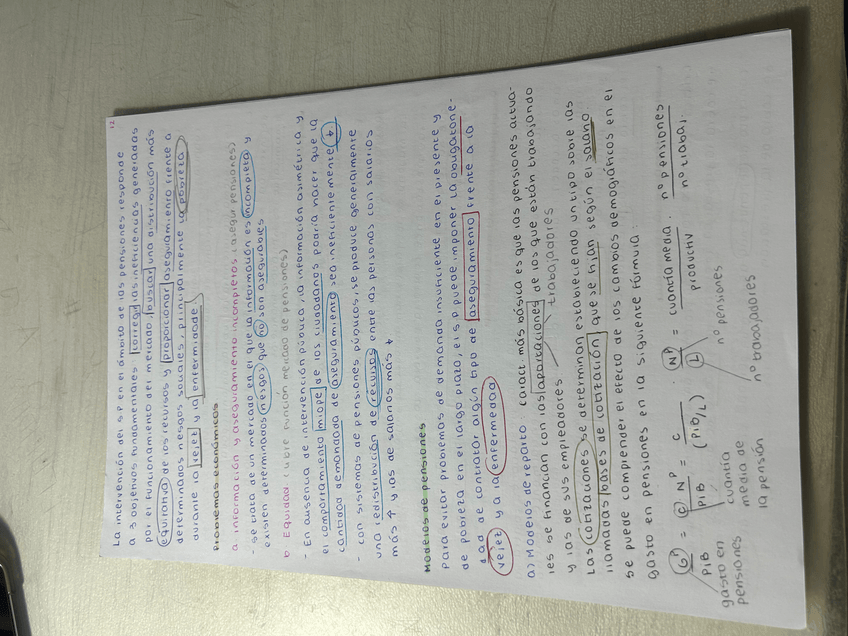 12
La intervención del SP en el ámbito de las pensiones responde
a 3 objetivos fundamentales: corregir las ineficiencias generadas
por el funcionamiento del mercado, buscar una distribución más
equitativa de los recursos y proporcionar aseguramiento frente a
determinados riesgos sociales, principalmente la pobreza
durante la vejez y la enfermedad.
Problemas económicos
a. Información y aseguramiento incompletos (asegur pensiones)
- Se trata de un mercado en el que la información es incompleta y
existen determinados riesgos que no son asegurables
b. Equidad (libre función mercado de pensiones)
- En ausencia de intervención pública, la información asimétrica y
el comportamiento miope de los ciudadanos podría hacer que la
cantidad demandada de aseguramiento sea ineficientemente ↓
- Con sistemas de pensiones públicos, se produce generalmente
una redistribución de recursos entre las personas con salarios
más ↑ y las de salarios más ↓
Modelos de pensiones
Para evitar problemas de demanda insuficiente en el presente y
de pobreza en el largo plazo, el SP puede imponer la obligatorie-
dad de contratar algún tipo de aseguramiento frente a la
vejez y a la enfermedad
a) Modelos de reparto: caract más básica es que las pensiones actua-
les se financian con las aportaciones de los que están trabajando
y las de sus empleadores
trabajadores
Las cotizaciones se determinan estableciendo un tipo sobre las
llamadas bases de cotización, que se fijan según el salario
Se puede comprender el efecto de los cambios demográficos en el
gasto en pensiones en la siguiente fórmula:
GP / PIB = C · NP / PIB = C / (PIB/L) · NP / L = cuantía media / productiv · nº pensiones / nº trabaj.
gasto en pensiones
cuantía media de la pensión
nº pensiones
nº trabajadores